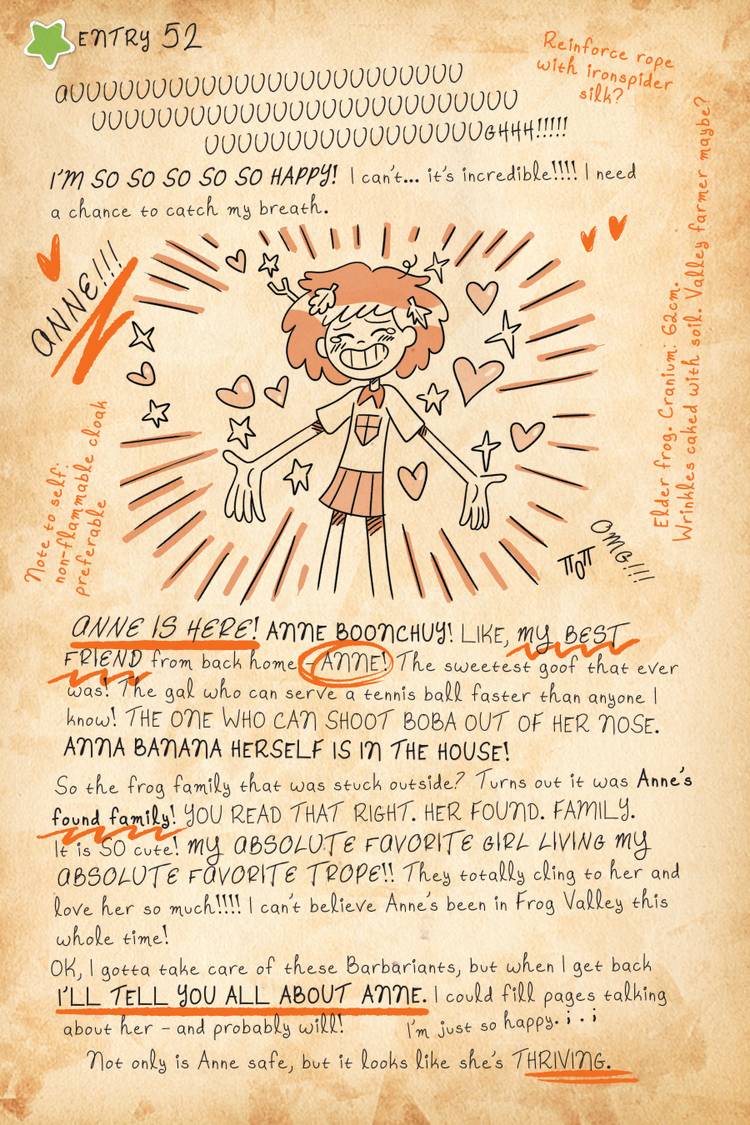 ENTRY 52
Reinforce rope
with ironspider
silk?
AUUUUUUUUUUUUUUUUUUUUUUU
UUUUUUUUUUUUUUUUUUUUUUUUU
UUUUUUUUUUUUUUUUUGHHH!!!!!
I'M SO SO SO SO SO HAPPY! I can't... it's incredible!!!! I need
a chance to catch my breath.
ANNE!!!
Elder frog. Cranium: 62cm.
Wrinkles caked with soil. Valley farmer maybe?
Note to self:
non-flammable cloak
preferable
OMG!!!
ANNE IS HERE! ANNE BOONCHUY! LIKE, MY BEST
FRIEND from back home - ANNE! The sweetest goof that ever
was! The gal who can serve a tennis ball faster than anyone I
know! THE ONE WHO CAN SHOOT BOBA OUT OF HER NOSE.
ANNA BANANA HERSELF IS IN THE HOUSE!
So the frog family that was stuck outside? Turns out it was Anne's
found family! YOU READ THAT RIGHT. HER FOUND. FAMILY.
It is SO cute! MY ABSOLUTE FAVORITE GIRL LIVING MY
ABSOLUTE FAVORITE TROPE!! They totally cling to her and
love her so much!!!! I can't believe Anne's been in Frog Valley this
whole time!
OK, I gotta take care of these Barbariants, but when I get back
I'LL TELL YOU ALL ABOUT ANNE. I could fill pages talking
about her - and probably will! I'm just so happy. ; . ;
Not only is Anne safe, but it looks like she's THRIVING.